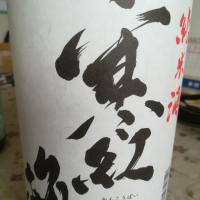 純米酒
寒紅
かんこうばい